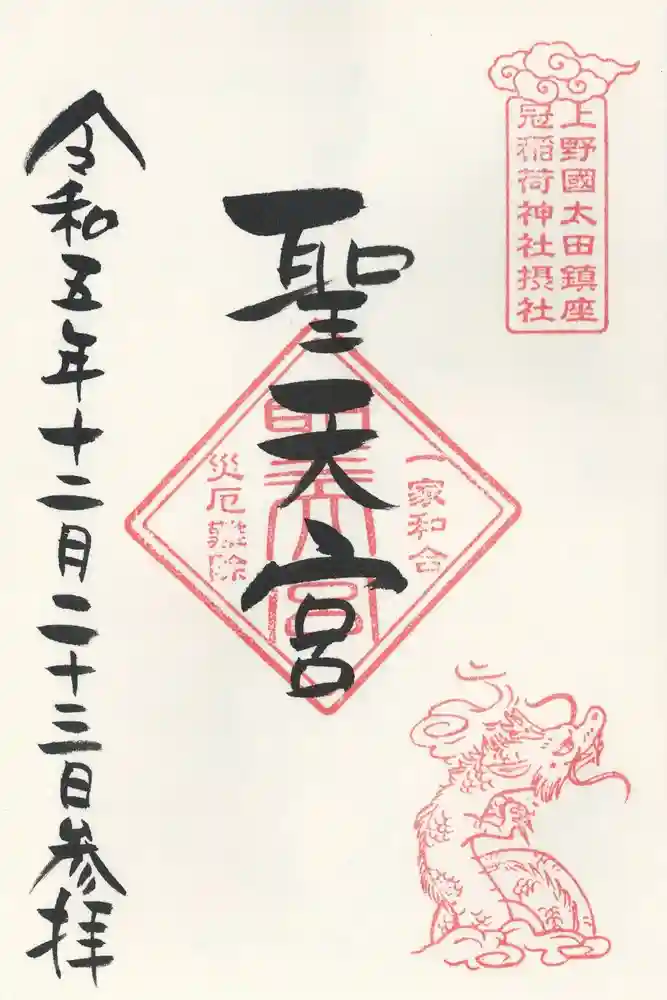 上野國太田鎮座
冠稲荷神社摂社
聖天宮
聖天宮
一家和合
災厄難除
令和五年十二月二十三日参拝